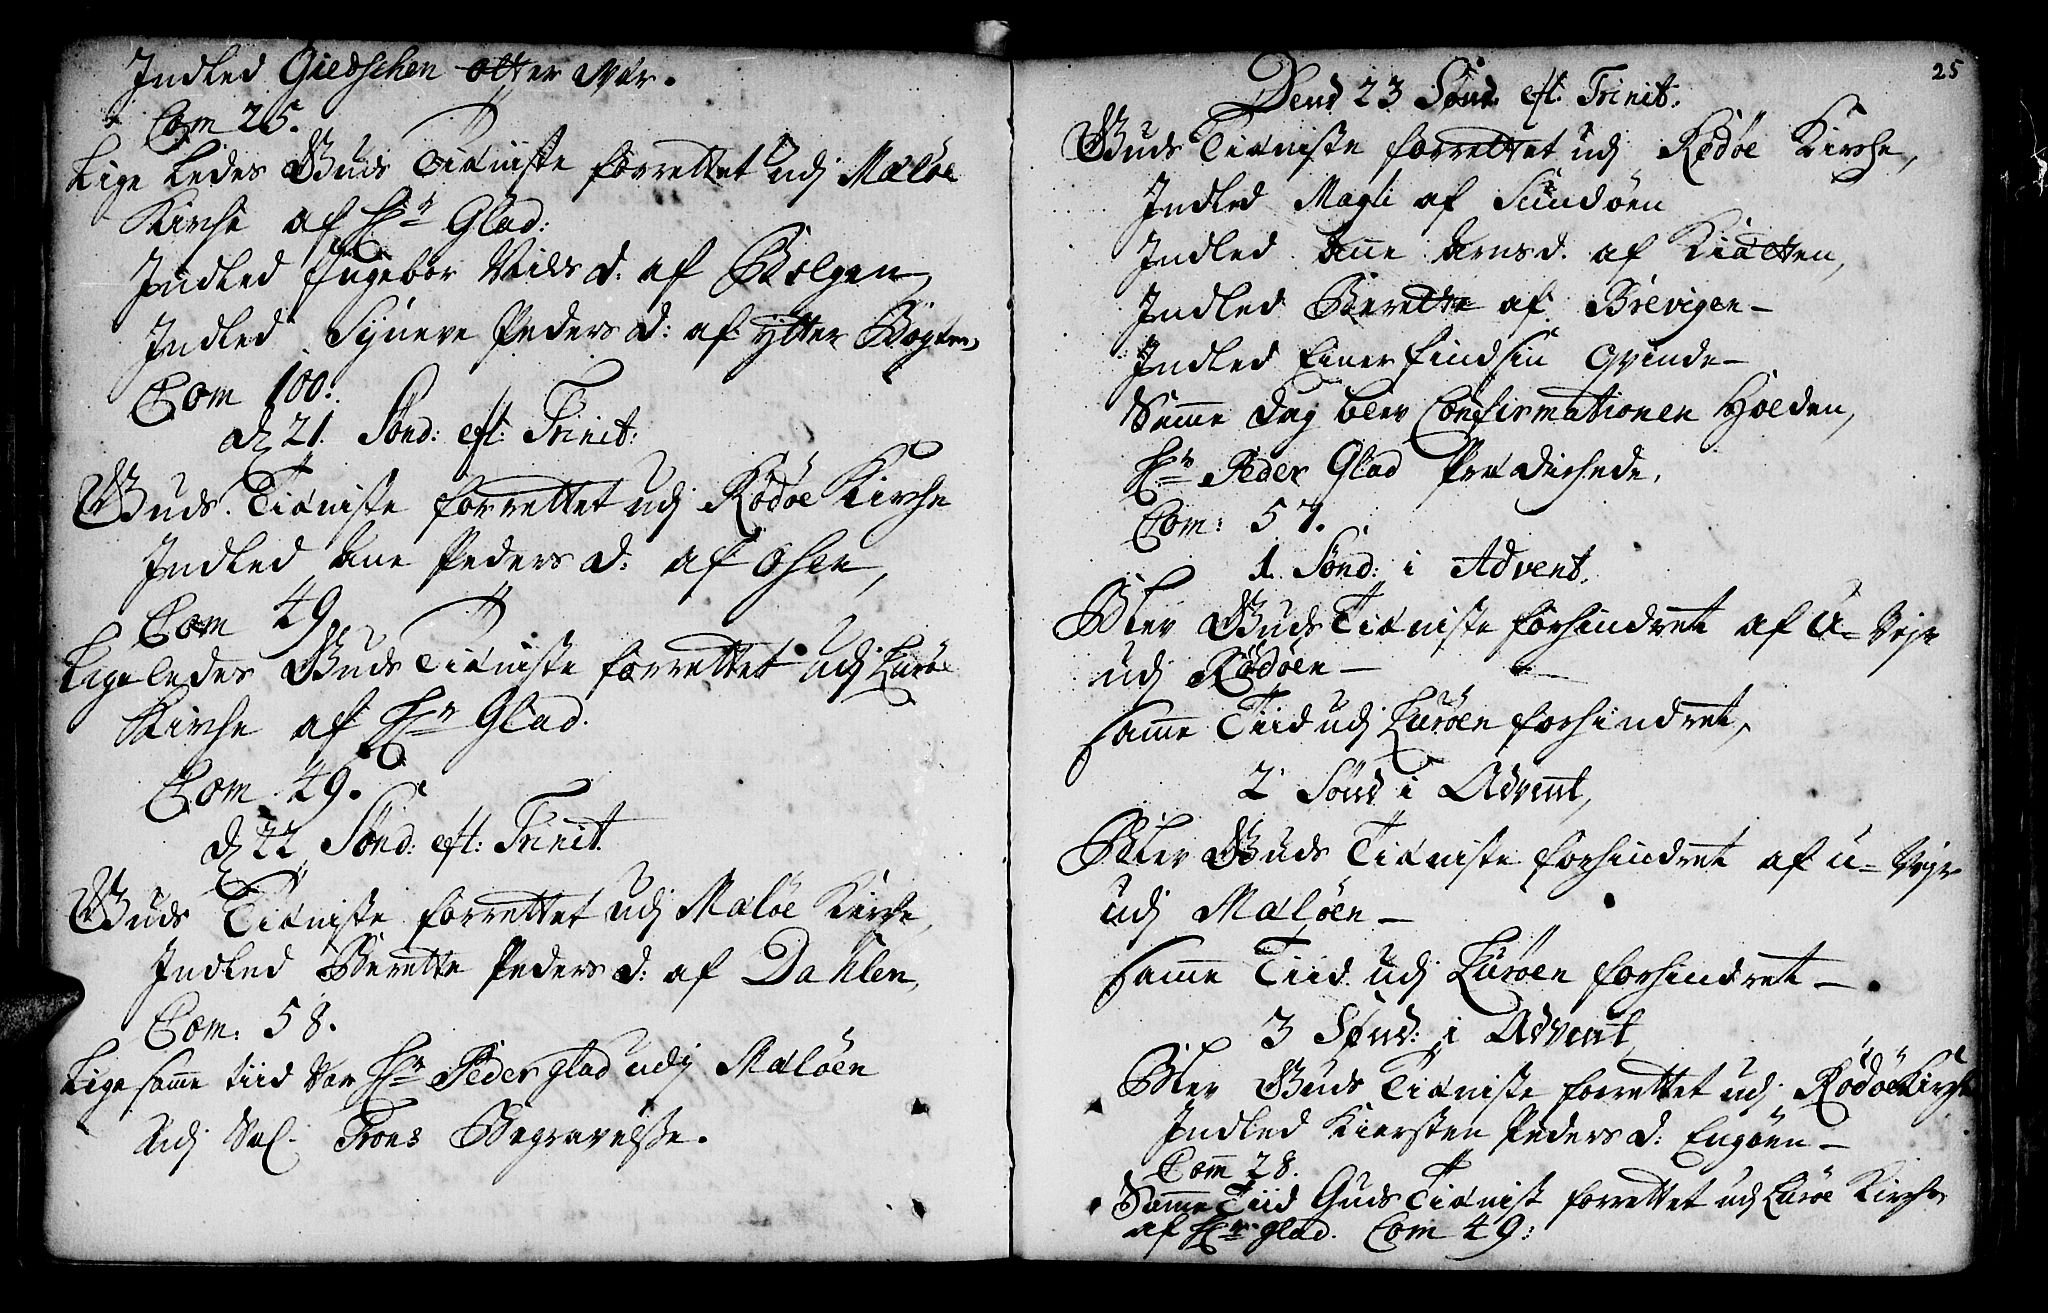 Indled Giedschen otter Vær.
Com 25.
Lige ledes Guds Tieniste forrettet udj Meløe
Kirke af Hr Glad:
Indled Ingebor Neilsd: af Bolgen,
Indled Syneve Pedersd: af ytter
Com 100.
d 21. Sönd: eft: Trinit:
Guds Tieniste forrettet udj Rödöe Kirche
Indled Ane Pedersd: af osen,
Com 49
Ligeledes Guds Tieniste forrettet udj Luröe
Kirche af Hr Glad.
Com 49.
d 22 Sönd: eft: Trinit.
Guds Tieniste forrettet udj Melöe Kirche,
Indled Berette Pedersd: af Dahlen,
Com: 58.
Lige samme tiid Var Hr Peder Glad udj Melöen
Udj Sal. Trons Begravelsse.
25
Dend 23 Sönd. eft. Trinit:
Guds Tieniste forrettet udj Rödöe Kirche,
Indled Magli af Sundöen
Indled Ane Arnsd. af
Indled Berette af Brevigen
Indled Einer Findsin Qvinde
Samme dag blev Confirmationen Holden,
Hr Peder Glad Prædichede.
Com: 57.
1. Sönd: i Advent.
Blev Guds Tieniste forhindret af U-Vejr
udj Rödöen
samme Tiid udj Luröen forhindret,
2 Sönd i Advent,
Blev Guds Tieniste forhindret af u-Vejr
udj Melöen
samme Tiid udj Luröen forhindret
3 Sönd: i Advent
Blev Guds Tieniste forrettet udj Rödöe Kirche
Indled Kiersten Pedersd: Engöen
Com 28.
Samme Tiid Guds Tienist forrettet udj Luröe Kirche
af Hr Glad. Com 49: